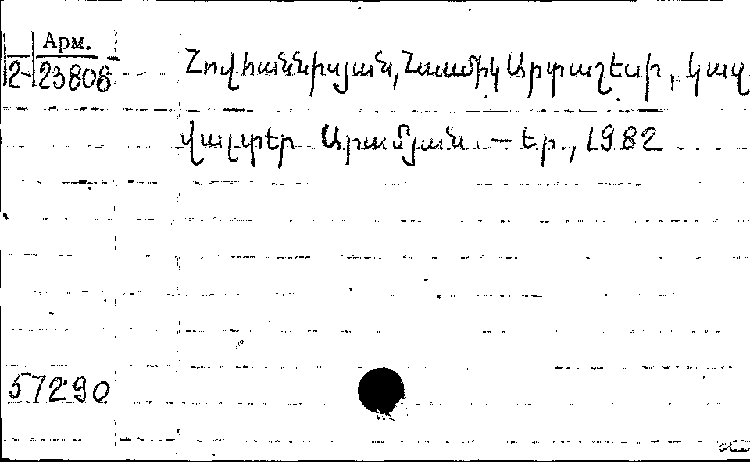 Арм.
2-23806
Հովհաննիսյան, Հասմիկ Արտաշեսի, կազ
վալտեր Արամյան. – Եր., 1982
57290